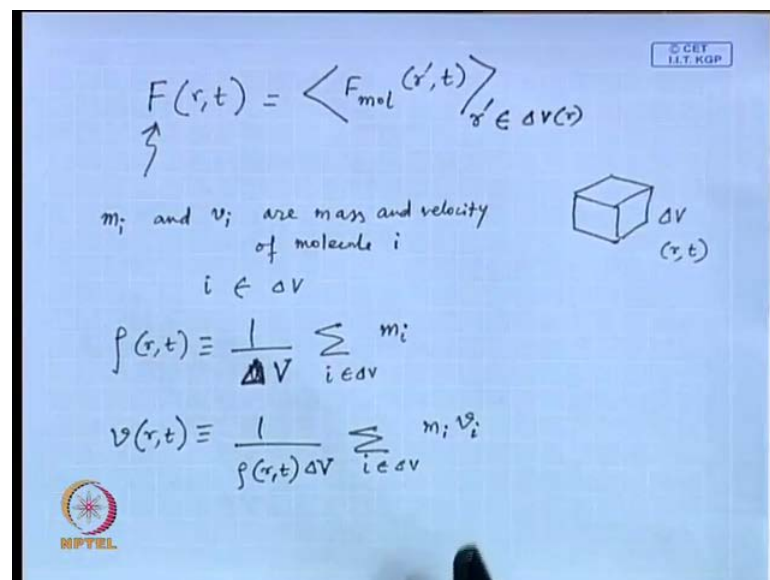 © CET
I.I.T. KGP
F(r,t) = < F_mol (r',t) >_r' ∈ ΔV(r)
m_i and v_i are mass and velocity
of molecule i
i ∈ ΔV
ΔV
(r,t)
ρ(r,t) ≡ 1/ΔV Σ_i∈ΔV m_i
v(r,t) ≡ 1/ρ(r,t)ΔV Σ_i∈ΔV m_i v_i
NPTEL